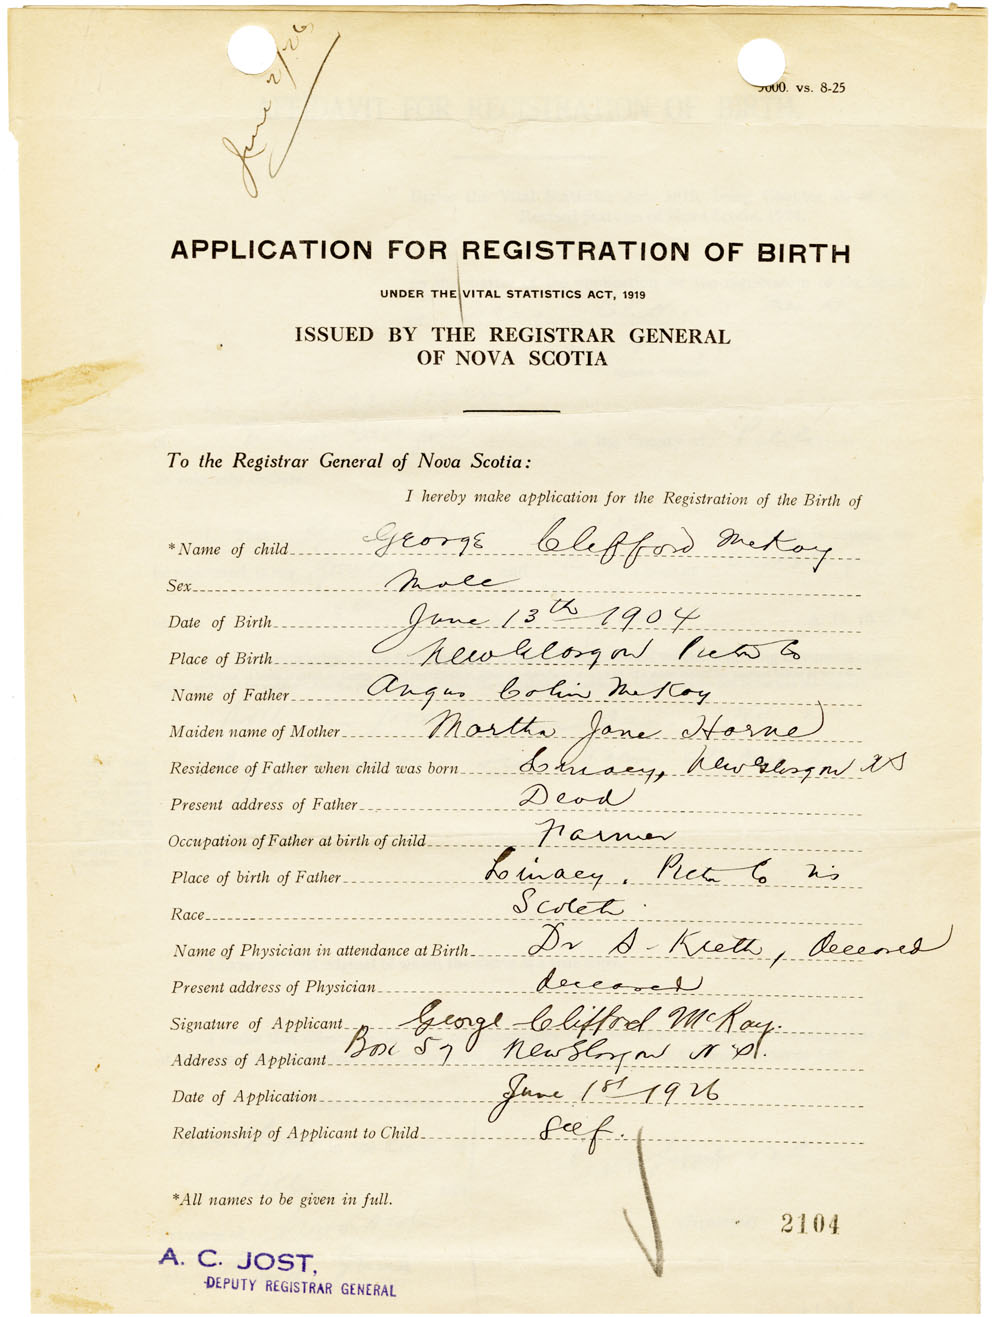 June 2/26
5000. vs. 8-25
APPLICATION FOR REGISTRATION OF BIRTH
UNDER THE VITAL STATISTICS ACT, 1919
ISSUED BY THE REGISTRAR GENERAL
OF NOVA SCOTIA
To the Registrar General of Nova Scotia:
I hereby make application for the Registration of the Birth of
*Name of child George Clifford McKay
Sex Male
Date of Birth June 13th 1904
Place of Birth New Glasgow Pictou Co
Name of Father Angus Colin McKay
Maiden name of Mother Martha Jane Horne
Residence of Father when child was born Linacy, New Glasgow NS
Present address of Father Dead
Occupation of Father at birth of child Farmer
Place of birth of Father Linacy, Pictou Co NS
Race Scotch
Name of Physician in attendance at Birth Dr S- Kieth, deceased
Present address of Physician deceased
Signature of Applicant George Clifford McKay.
Address of Applicant Box 57 New Glasgow N.S.
Date of Application June 1st 1926
Relationship of Applicant to Child Self.
*All names to be given in full.
2104
A. C. JOST,
DEPUTY REGISTRAR GENERAL